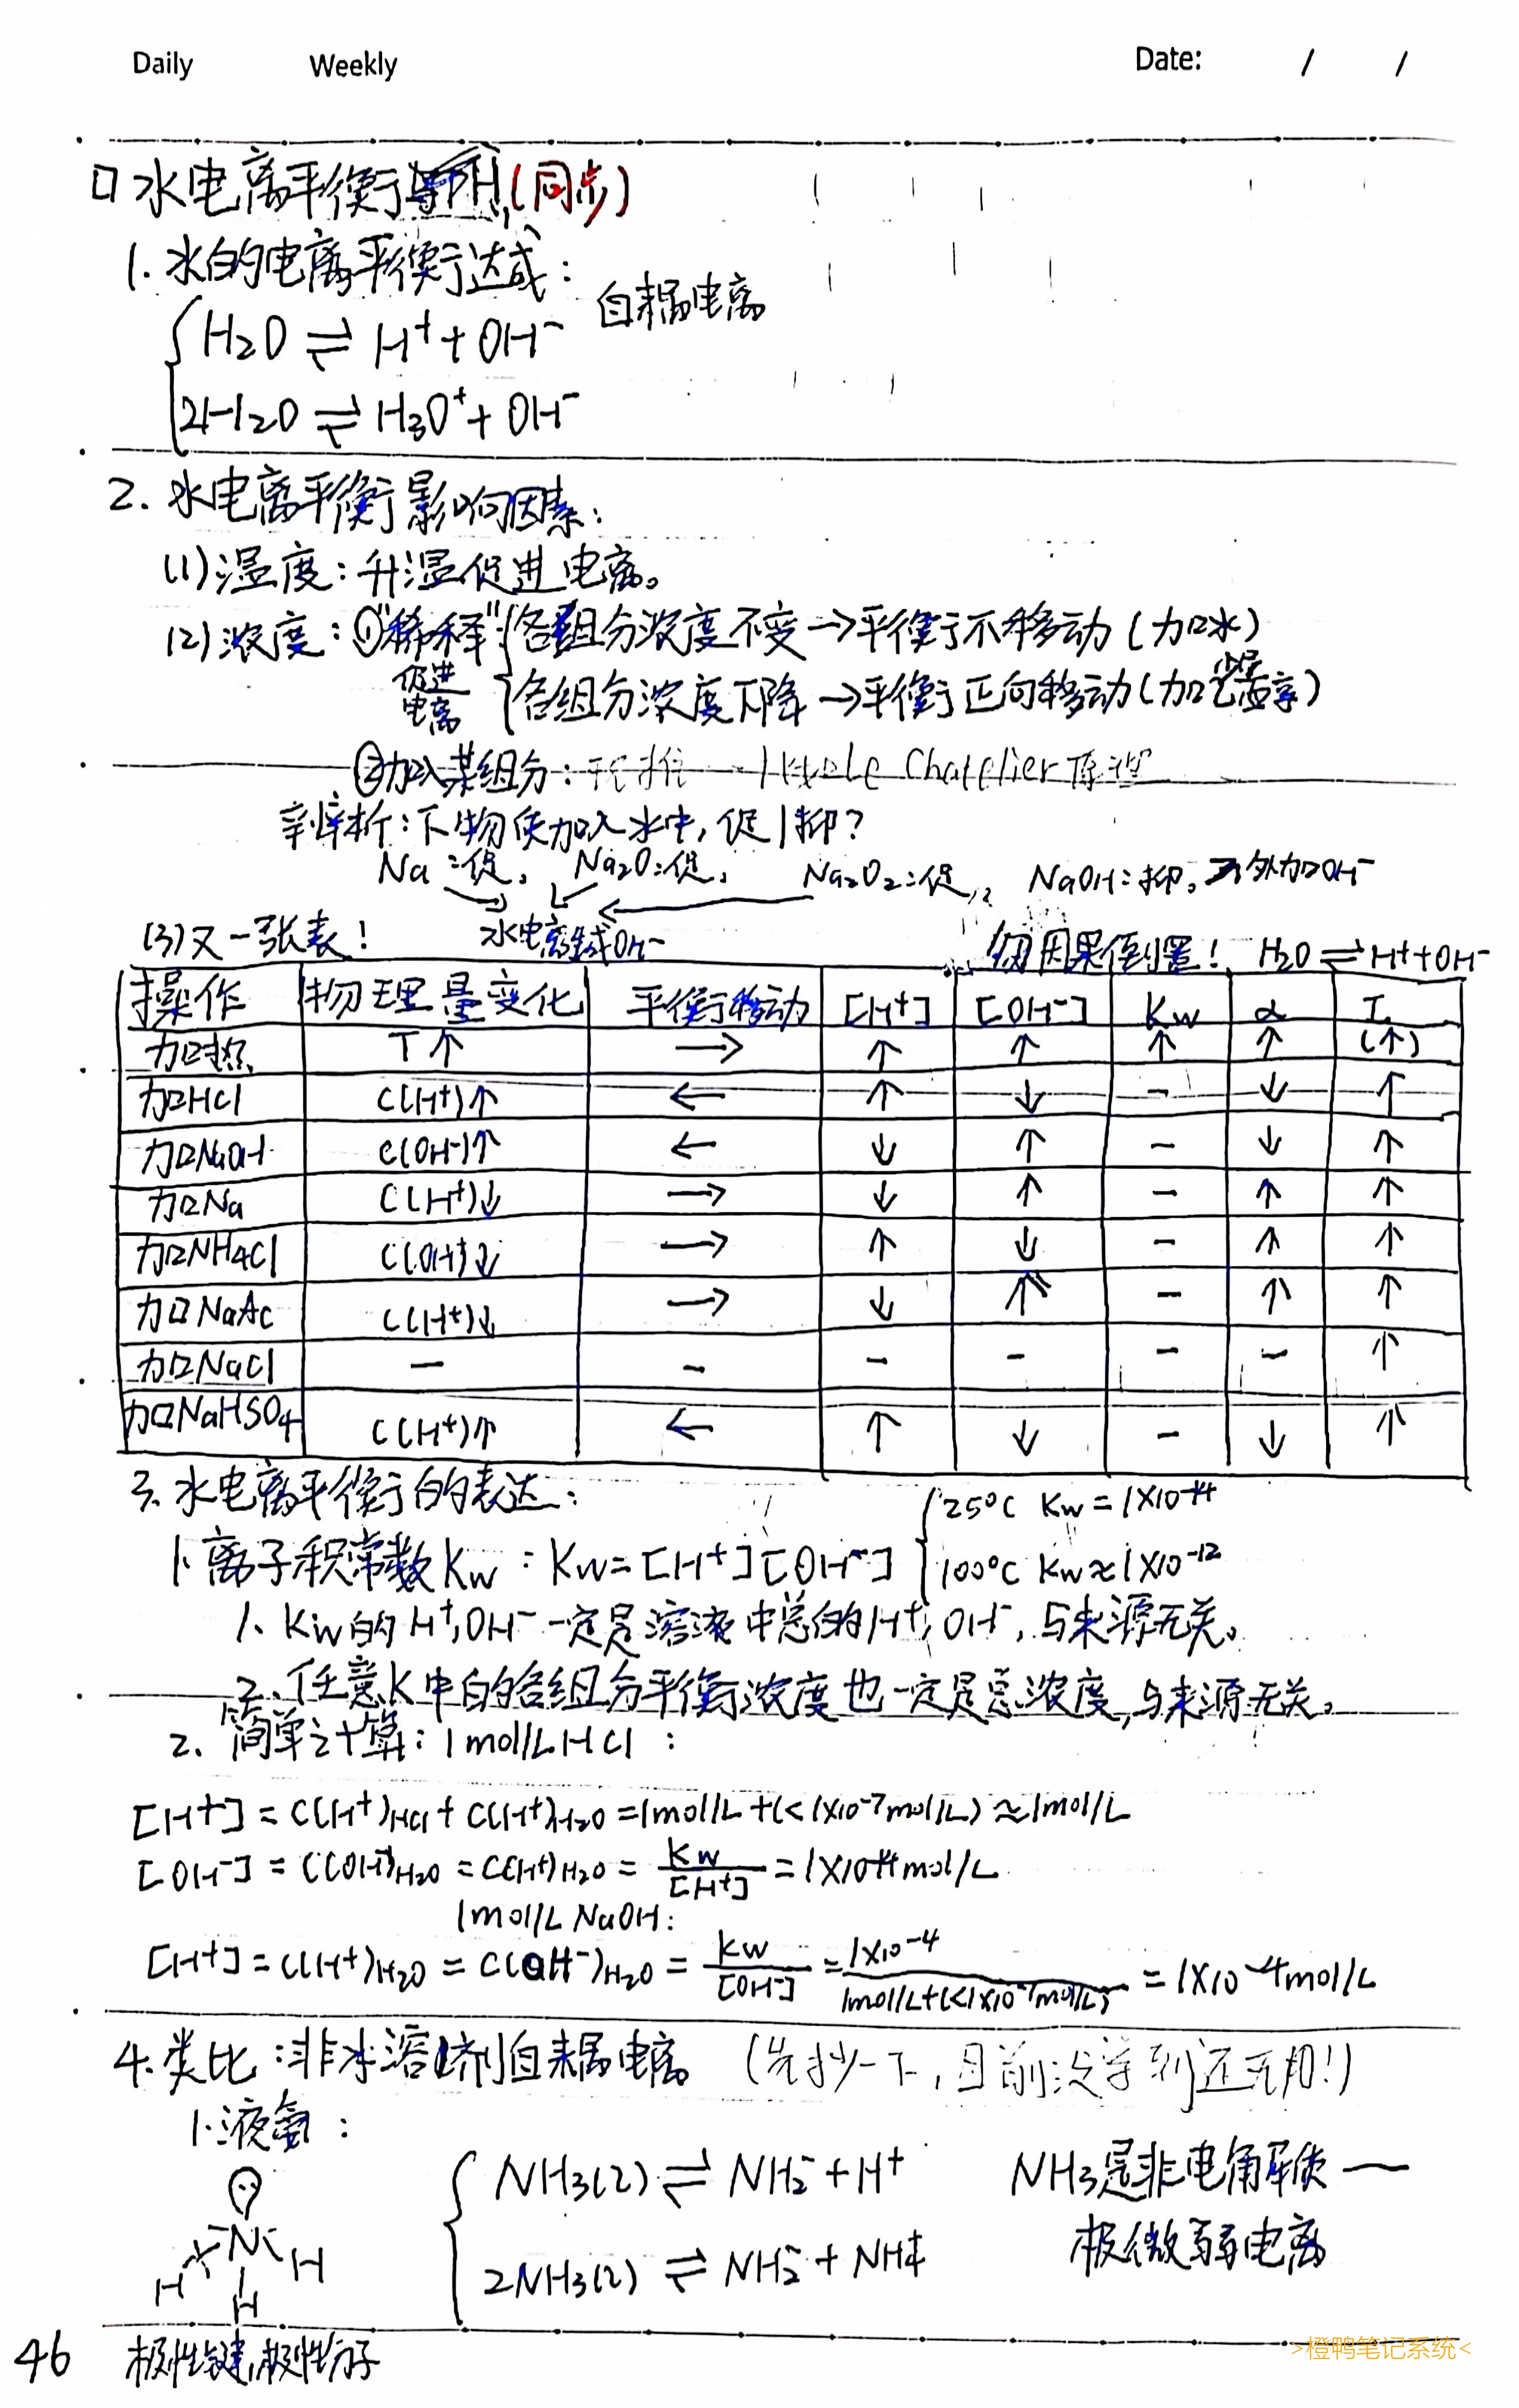 Daily Weekly Date: / /
口 水电离平衡 (同步)
1. 水的电离平衡达成:
H₂O ⇌ H⁺ + OH⁻ 自耦电离
2H₂O ⇌ H₃O⁺ + OH⁻
2. 水电离平衡影响因素:
(1) 温度: 升温促进电离。
(2) 浓度: ①"稀释": 各组分浓度不变→平衡不移动 (加水)
促进电离 各组分浓度下降→平衡正向移动 (加少量乙醇)
②加入某组分: Le Chatelier 原理
辨析: 下物质加入水中, 促/抑?
Na: 促, Na₂O: 促, Na₂O₂: 促, NaOH: 抑。→外加OH⁻
水电离成OH⁻
(3) 又一张表! 勿因果倒置! H₂O ⇌ H⁺+OH⁻
操作 物理量变化 平衡移动 [H⁺] [OH⁻] Kw α I
加热 T↑ → ↑ ↑ ↑ ↑ (↑)
加HCl C(H⁺)↑ ← ↑ ↓ - ↓ ↑
加NaOH C(OH⁻)↑ ← ↓ ↑ - ↓ ↑
加Na C(H⁺)↓ → ↓ ↑ - ↑ ↑
加NH₄Cl C(OH⁻)↓ → ↑ ↓ - ↑ ↑
加NaAc C(H⁺)↓ → ↓ ↑ - ↑ ↑
加NaCl - - - - - - ↑
加NaHSO₄ C(H⁺)↑ ← ↑ ↓ - ↓ ↑
3. 水电离平衡的表达:
1. 离子积常数Kw: Kw=[H⁺][OH⁻] 25°C Kw=1×10⁻¹⁴
100°C Kw≈1×10⁻¹²
1. Kw的H⁺,OH⁻一定是溶液中总的H⁺,OH⁻, 与来源无关。
2. 任意K中的各组分平衡浓度也一定是总浓度, 与来源无关。
2. 简单计算: 1mol/L HCl:
[H⁺] = C(H⁺)HCl + C(H⁺)H₂O = 1mol/L + (<1×10⁻⁷mol/L) ≈ 1mol/L
[OH⁻] = C(OH⁻)H₂O = C(H⁺)H₂O = Kw/[H⁺] = 1×10⁻¹⁴mol/L
1mol/L NaOH:
[H⁺] = C(H⁺)H₂O = C(OH⁻)H₂O = Kw/[OH⁻] = 1×10⁻⁴/1mol/L+(<1×10⁻⁷mol/L) = 1×10⁻¹⁴mol/L
4. 类比: 非水溶剂自耦电离 (先抄一下, 目前没学到还无用!)
1. 液氨:
NH₃(l) ⇌ NH₂⁻ + H⁺ NH₃是非电解质一
2NH₃(l) ⇌ NH₂⁻ + NH₄⁺ 极微弱电离
N H H H
46 极性键,极性分子
>橙鸭笔记系统<